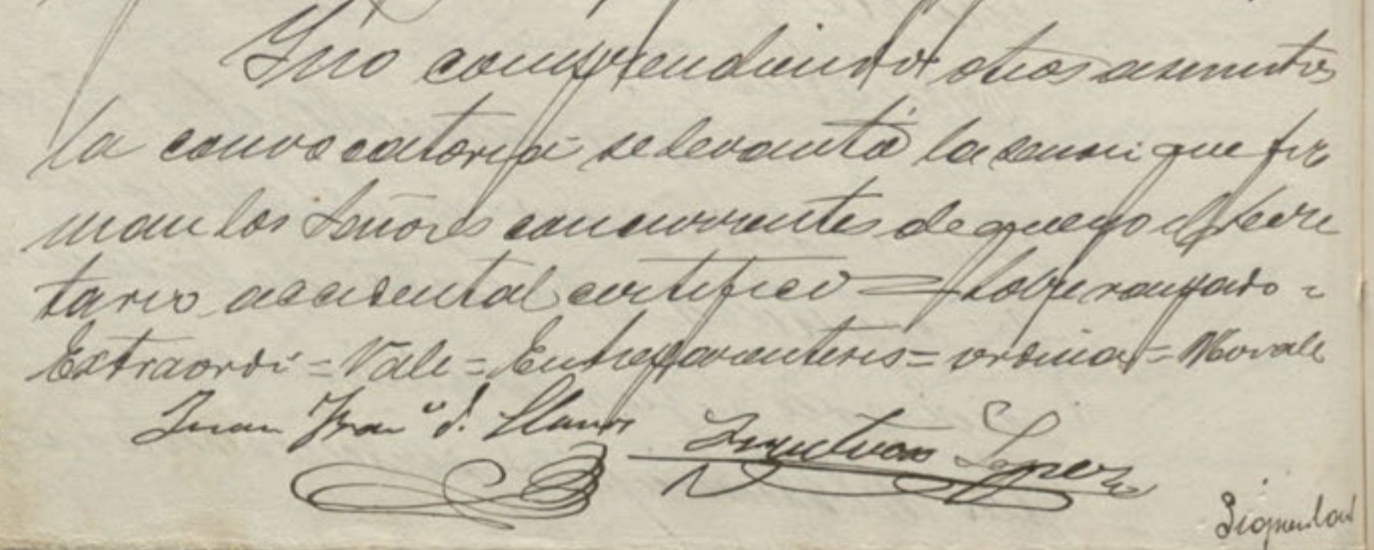 Y no comprendiendo otros asuntos
la convocatoria se levantó la sesion que fir
man los Señores concurrentes de que yo el Secre
tario accidental certifico = Sobre raspado =
Extraordi = Vale = Entre parentesis = ordina = No vale
Juan Franco d. Llanos Lopez
Siguen las